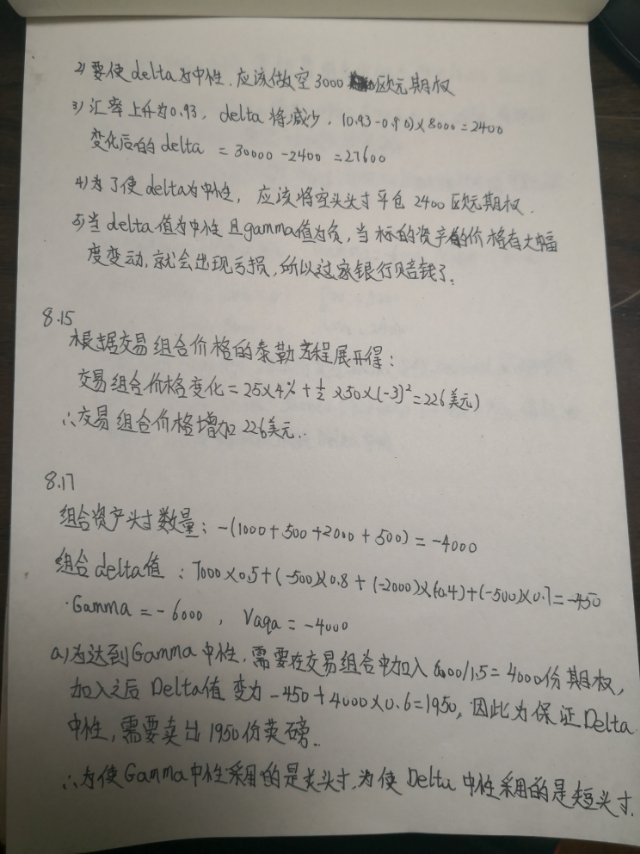 2) 要使delta为中性,应该做空3000欧元期权
3) 汇率上升为0.93, delta将减少, (0.93-0.90)×8000=2400
变化后的delta = 30000-2400=27600
4) 为了使delta为中性, 应该将空头头寸平仓2400欧元期权.
5) 当delta值为中性且gamma值为负,当标的资产的价格有大幅
度变动,就会出现亏损,所以这家银行赔钱了。
8.15
根据交易组合价格的泰勒方程展开得:
交易组合价格变化=25×4%+½×50×(-3)²=226美元)
∴交易组合价格增加226美元.
8.17
组合资产头寸数量: -(1000+500+2000+500)=-4000
组合delta值: 1000×0.5+(-500)×0.8+(-2000)×(0.4)+(-500)×0.7=-450
Gamma=-6000, Vaga=-4000
a)为达到Gamma中性,需要在交易组合中加入6000/1.5=4000份期权,
加入之后Delta值变为-450+4000×0.6=1950,因此为保证Delta
中性,需要卖出1950份英磅.
∴为使Gamma中性采用的是长头寸,为使Delta中性采用的是短头寸.